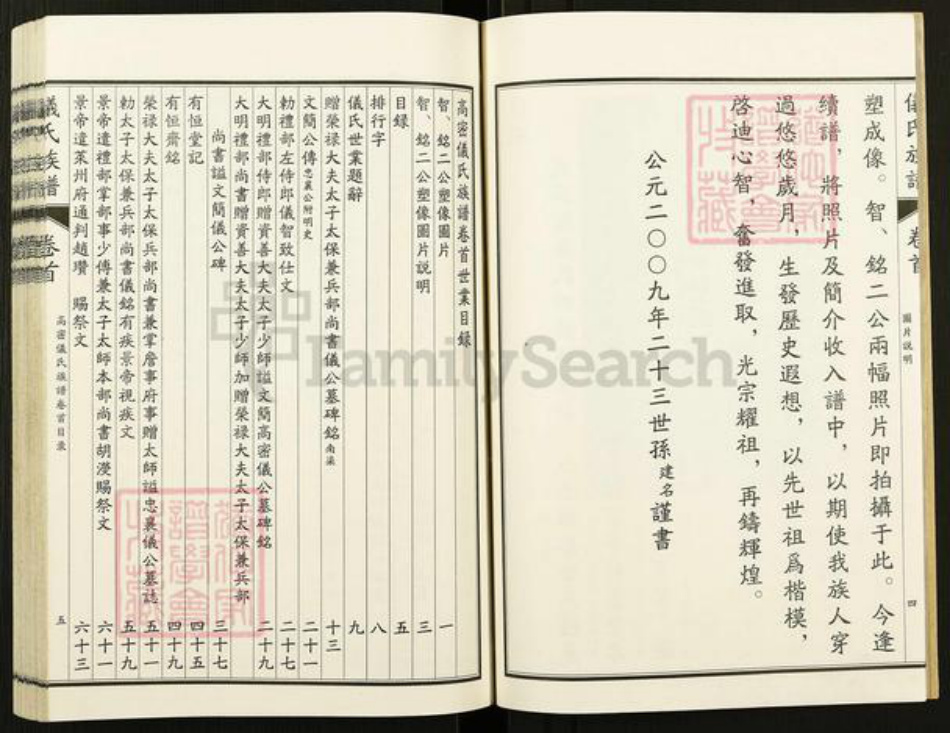 儀氏族譜 卷首 圖片說明 四
塑成像。智、銘二公兩幅照片即拍攝于此。今逢
續譜，將照片及簡介收入譜中，以期使我族人穿
過悠悠歲月，生發歷史遐想，以先世祖爲楷模，
啓迪心智，奮發進取，光宗耀祖，再鑄輝煌。
公元二〇〇九年二十三世孫建名謹書
高密儀氏族譜卷首世業目録
智、銘二公塑像圖片 一
智、銘二公塑像圖片説明 三
目録 五
排行字 八
儀氏世業題辭 九
贈榮禄大夫太子太保兼兵部尚書儀公墓碑銘南渠 十三
文簡公傳忠襄公附明史 二十一
勅禮部左侍郎儀智致仕文 二十七
大明禮部侍郎贈資善大夫太子少師謚文簡高密儀公墓碑銘 二十九
大明禮部尚書贈資善大夫太子少師加贈榮禄大夫太子太保兼兵部
尚書謚文簡儀公碑 三十七
有恒堂記 四十五
有恒齋銘 四十九
榮禄大夫太子太保兵部尚書兼掌詹事府事贈太師謚忠襄儀公墓誌 五十一
勅太子太保兼兵部尚書儀銘有疾景帝視疾文 五十九
景帝遣禮部掌部事少傅兼太子太師本部尚書胡濙賜祭文 六十一
景帝遣萊州府通判趙瓚 賜祭文 六十三
高密儀氏族譜卷首目录 五
儀氏族譜 卷首
FamilySearch